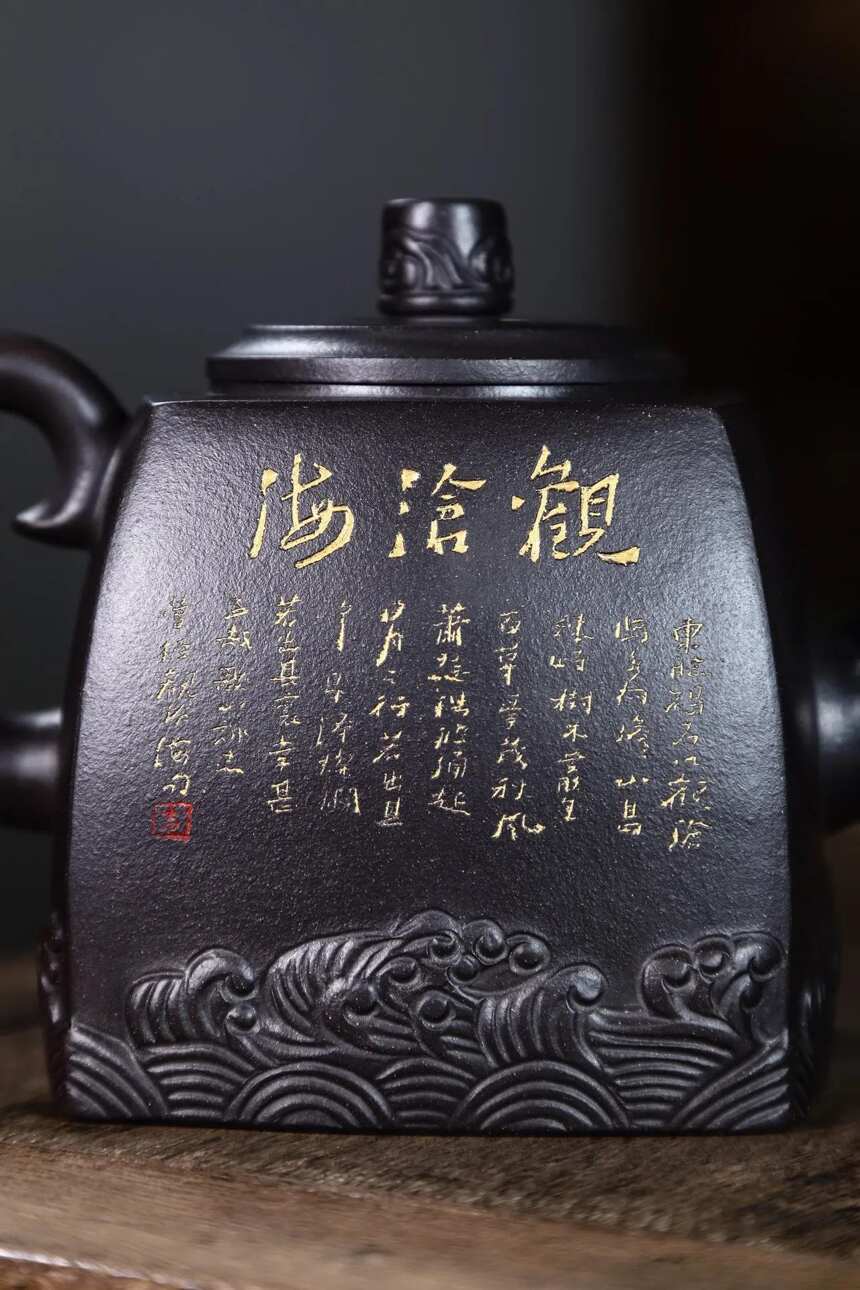 觀滄海
東臨碣石以觀滄
海水何澹澹山島
竦峙樹木叢生
百草豐茂秋風
蕭瑟洪波涌起
日月之行若出其
中星漢燦爛
若出其裏幸甚
至哉歌以詠志
觀滄海